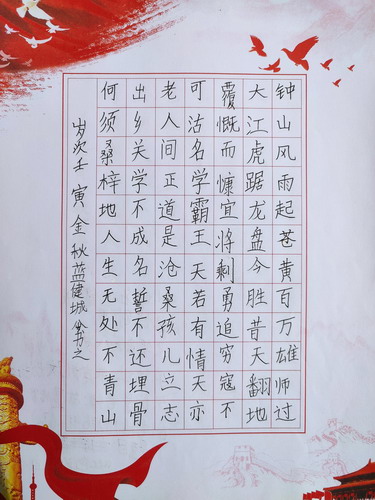 钟山风雨起苍黄百万雄师过
大江虎踞龙盘今胜昔天翻地
覆慨而慷宜将剩勇追穷寇不
可沽名学霸王天若有情天亦
老人间正道是沧桑孩儿立志
出乡关学不成名誓不还埋骨
何须桑梓地人生无处不青山
岁次壬寅金秋蓝健城书之